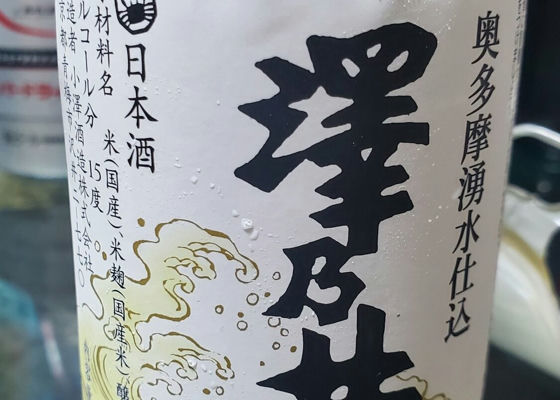 奥多摩湧水仕込
澤乃井
日本酒
原材料名 米(国産)、米麹(国産米)、醸
アルコール分 15度
製造者 小澤酒造株式会社
東京都青梅市沢井二-七七〇